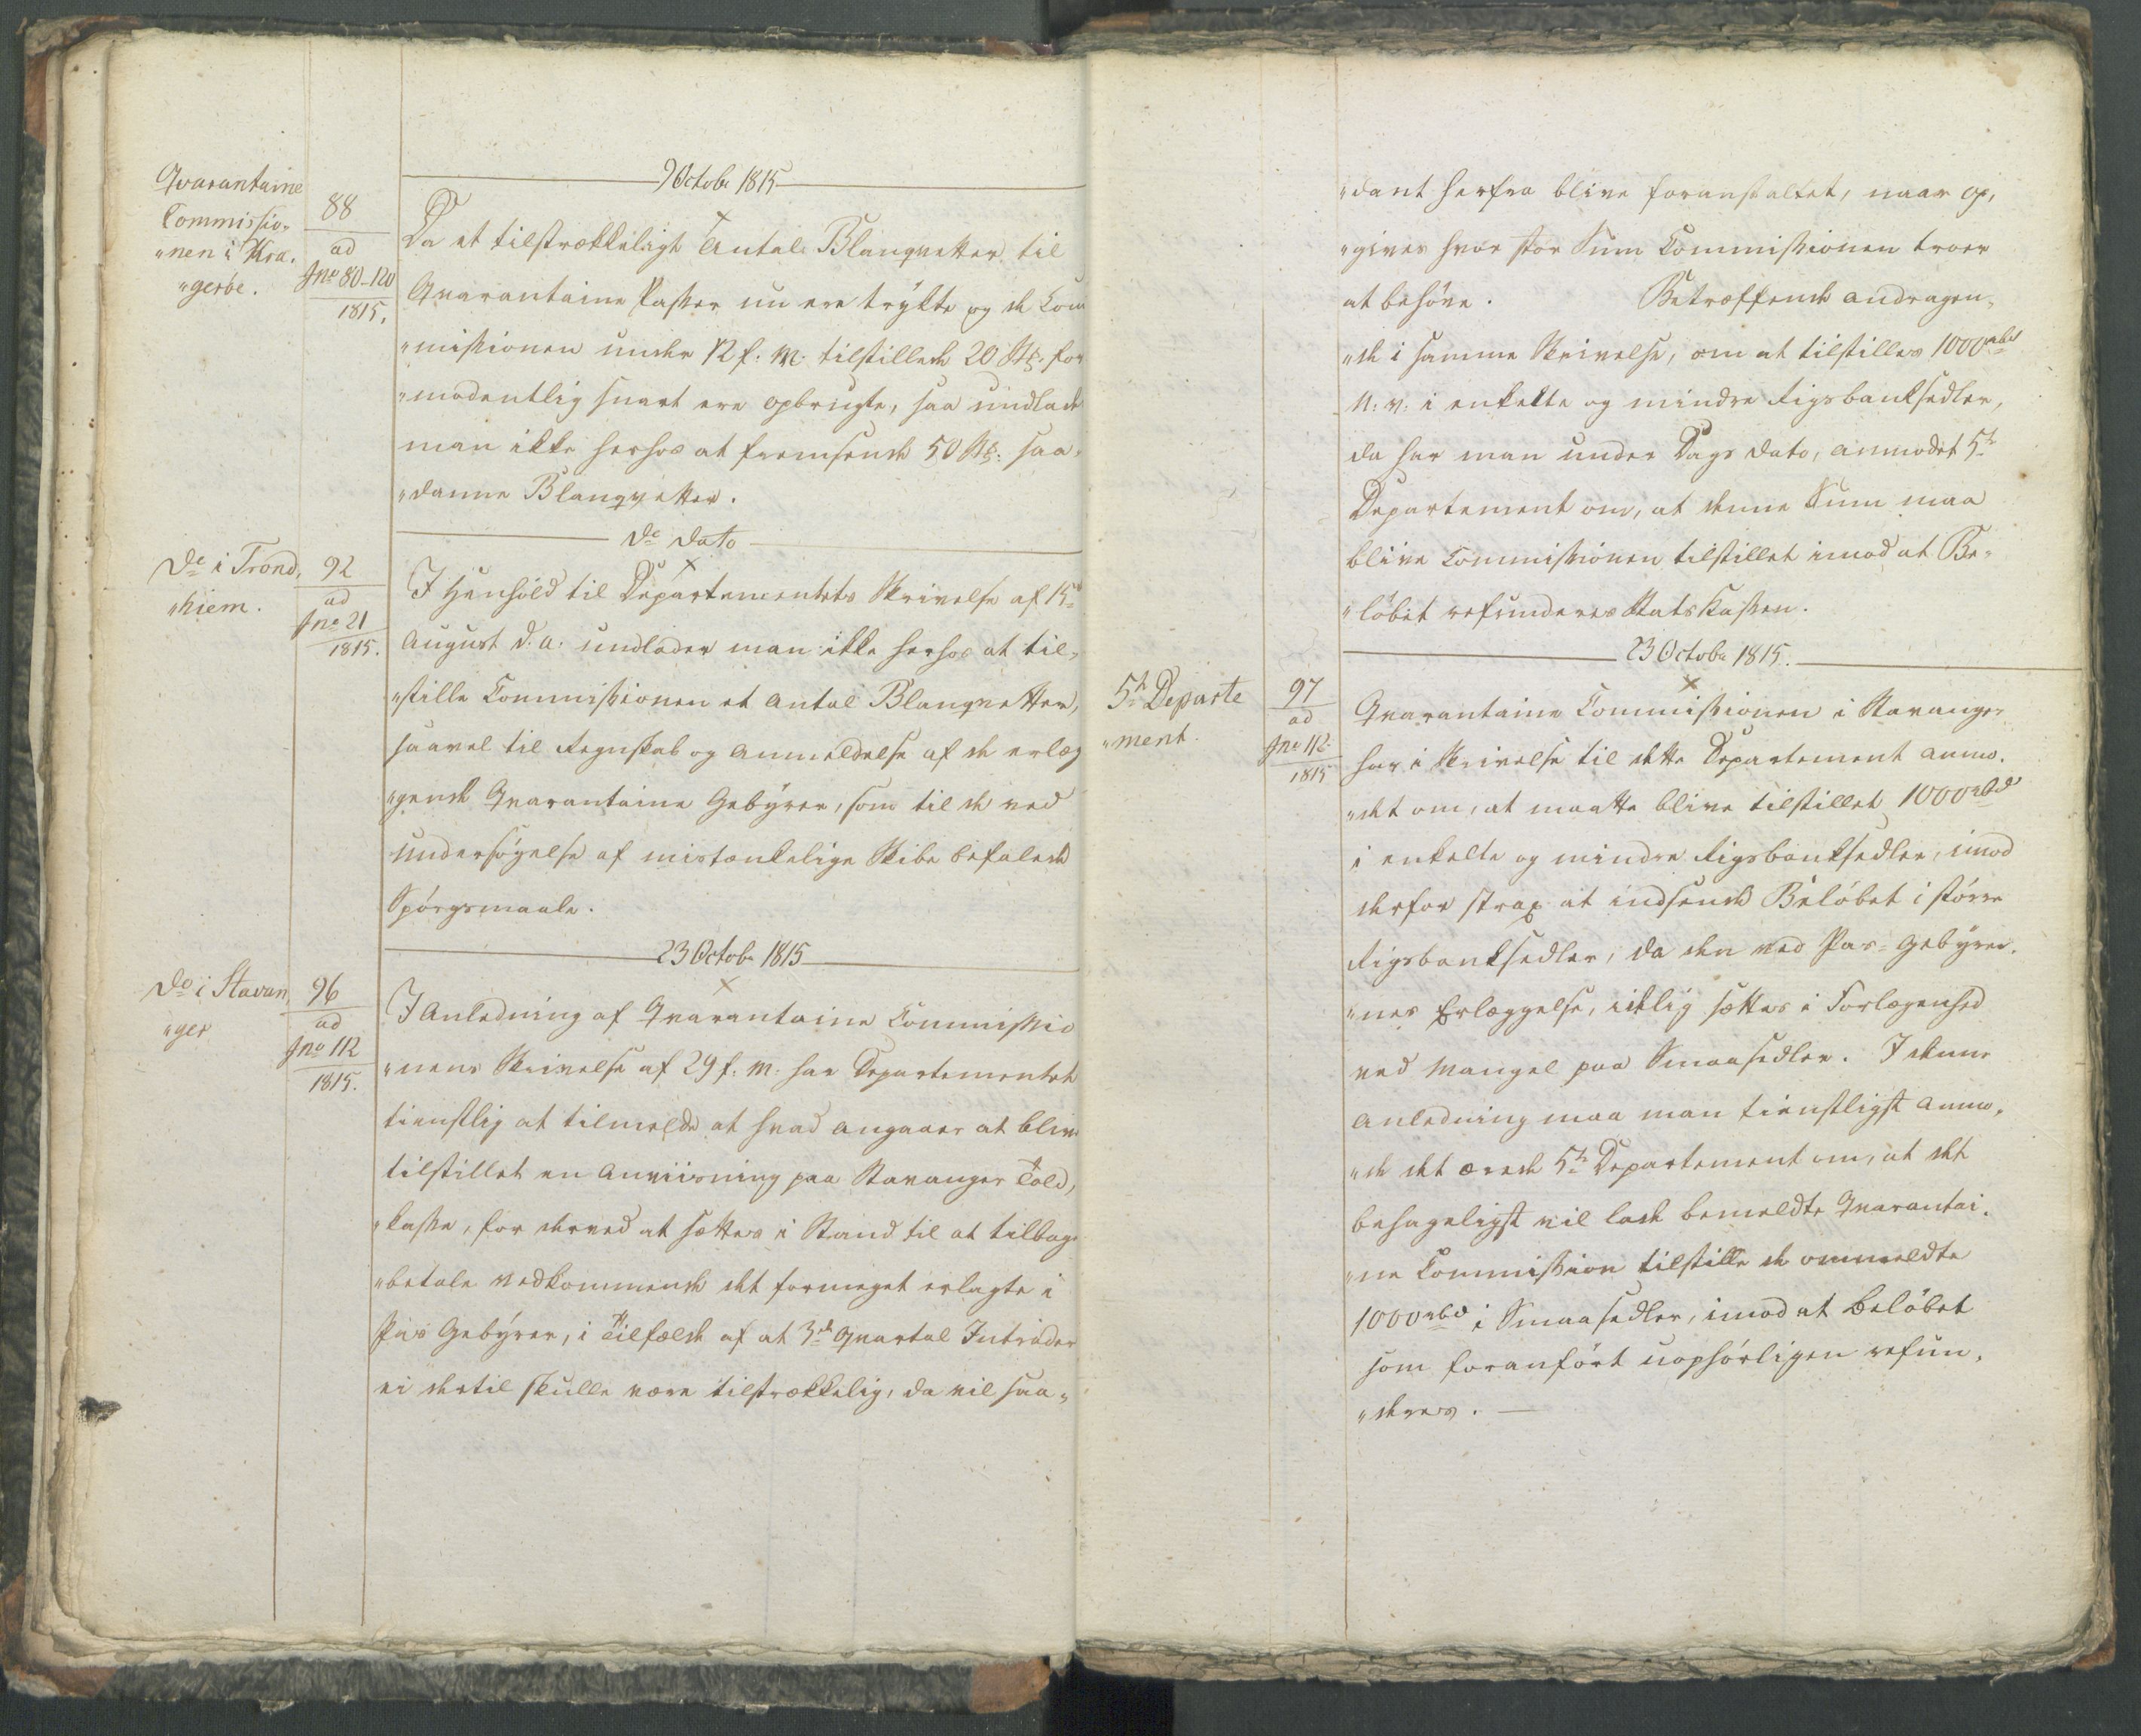 Qvarantaine
Commissio,
"nen i Kra,
"gerøe.
88
ad
Jno 80-120
1815.
9 Octobr 1815
Da et tilstrækkeligt Antal Blanqvetter til
Qvarantaine Passer nu ere trykte og de Com
"missionen under 12 f: M: tilstillede 20 Stk: for
"modentlig snart ere opbrugte, saa undlade
man ikke herhos at fremsende 50 Stk: saa,
"danne Blanqvetter.
Do Dato
Do i Trond,
"hiem.
92
ad
Jno 21
1815.
I Henhold til Departementets Skrivelse af 15de
August d: A: undlader man ikke herhos at til,
"stille Commissionen et Antal Blanqvetter,
saavel til Regnskab og Anmeldelse af de erlæg
"gende Qvarantaine Gebyrer, som til de ved
Undersøgelse af mistænkelige Skibe befalede
Spørgsmaale.
23 Octobr 1815
Do i Stavan
"ger
96
ad
Jno 112
1815.
I Anledning af Qvarantaine Commissio
"nens Skrivelse af 29 f: M: har Departementet
tienstlig at tilmelde at hvad angaaer at blive
tilstillet en Anviisning paa Stavanger Told,
"kasse, for derved at sættes i Stand til at tilbage
"betale Vedkommende det formeget erlagte i
Pas Gebyrer, i Tilfælde af at 3de Qvartal Intrader
ei dertil skulle være tilstrækkelig, da vil saa,
"dant herfra blive foranstaltet, naar op,
"gives hvor stor Sum Commissionen troer
at behøve. Betræffende andragen,
"de i samme Skrivelse, om at tilstilles 1000 rbd
N: V: i enkelte og mindre Rigsbanksedler,
da har man under Dags Dato, anmodet 5te
Departement om, at denne Sum maa
blive Commissionen tilstillet imod at Be,
"løbet refunderes StatsKassen.
23 Octobr 1815.
5te Departe
"ment.
97
ad
Jno 112
1815
Qvarantaine Commissionen i Stavanger
har i Skrivelse til dette Departement anmo,
"det om, at maatte blive tilstillet 1000 rbd
i enkelte og mindre Rigsbanksedler, imod
derfor strax at indsende Beløbet i større
Rigsbanksedler, da den ved Pas-Gebyrer,
"nes Erlæggelse, idelig sættes i Forlegenhed
ved Mangel paa Smaasedler. I denne
Anledning maa man tienstligst anmo,
"de det ærede 5te Departement om, at det
behageligst vil lade bemeldte Qvarantai,
"ne Commission tilstille de ommeldte
1000 rbd i Smaasedler, imod at Beløbet
som foranført uophørligen refun,
"deres. —